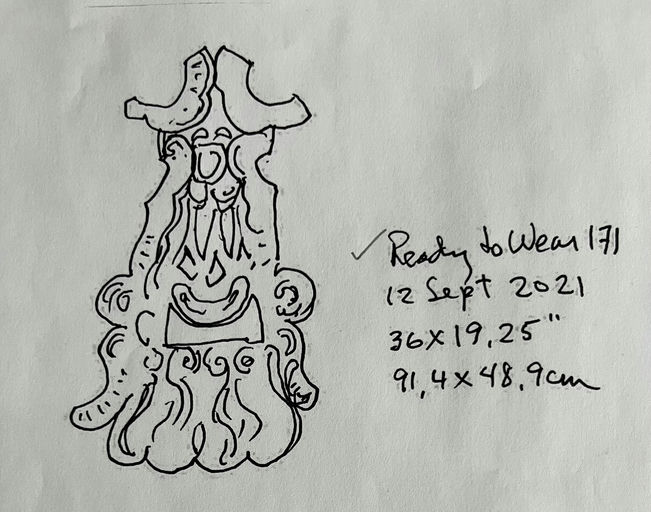 ✓ Ready to Wear 171
12 Sept 2021
36x19.25"
91.4x48.9cm